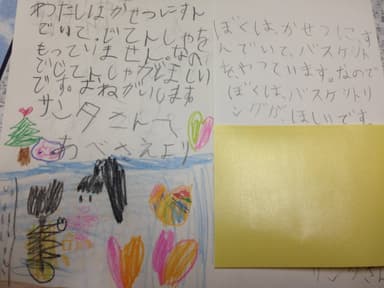 わたしはかせつにすん
でいて、じてんしゃを
もっていません。なの
でじてんしゃがほしい
です。 ねがいします
サンタさんへ
あべさえより
ぼくは、かせつにす
んでいて、バスケット
をやっています。なので
ぼくは、バスケットリ
ングが、ほしいです